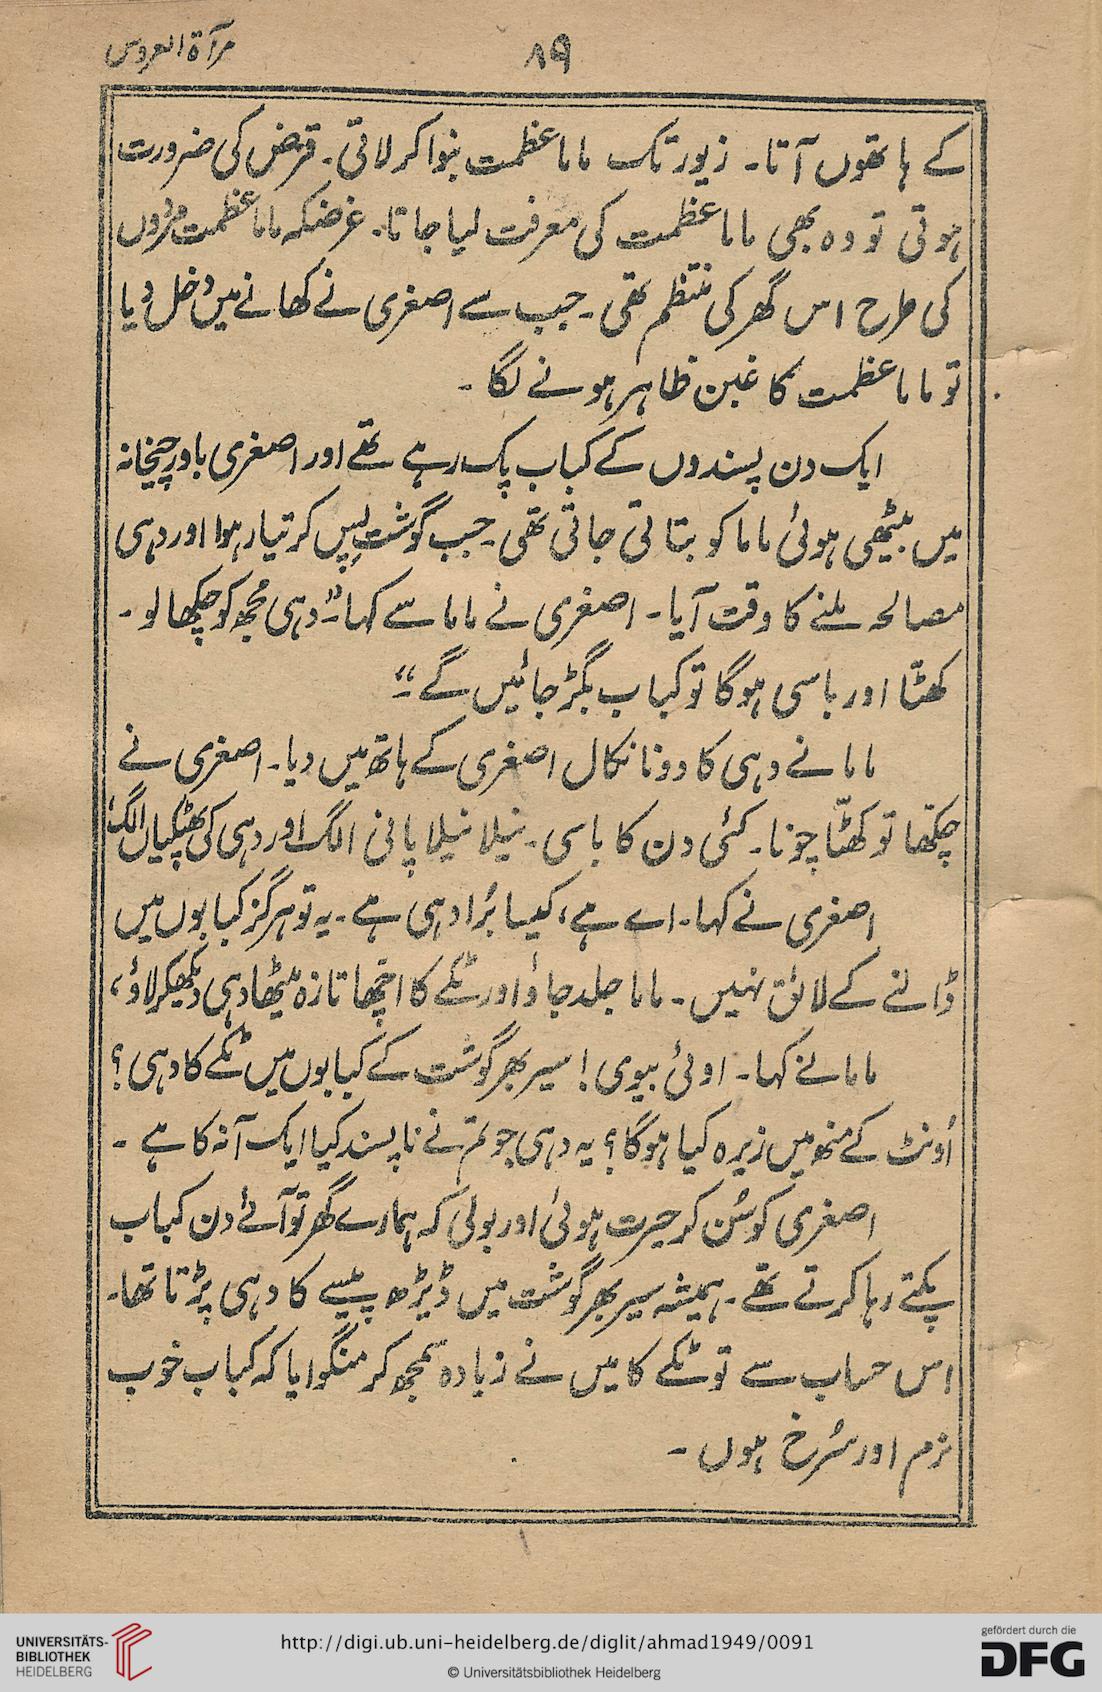 مرآۃ العروس
۸۹
کے ہاتھوں آتا۔ زیور تک ماما عظمت بنوا کر لاتی۔ قرض کی ضرورت
ہوتی تو وہ بھی ماما عظمت کی معرفت لیا جاتا۔ غرضکہ ماما عظمت مردوں
کی طرح اس گھر کی منتظم تھی۔ جب سے اصغری نے کھانے میں دخل دیا
تو ماما عظمت کا غبن ظاہر ہونے لگا۔
ایک دن پسندوں کے کباب پک رہے تھے اور اصغری باورچیخانہ
میں بیٹھی ہوئی ماما کو بتاتی جاتی تھی۔ جب گوشت پِس کر تیار ہوا اور دہی
مصالحہ ملنے کا وقت آیا۔ اصغری نے ماما سے کہا۔ ”دہی مجھ کو چکھا لو۔
کھٹّا اور باسی ہوگا تو کباب بگڑ جائیں گے۔“
ماما نے دہی کا دونا نکال اصغری کے ہاتھ میں دیا۔ اصغری نے
چکّھا تو کھٹّا چونا۔ کئی دن کا باسی۔ نیلا نیلا پانی الگ اور دہی کی پھٹکیاں الگ،
اصغری نے کہا۔ اے ہے، کیسا بُرا دہی ہے۔ یہ تو ہرگز کبابوں میں
ڈالنے کے لائق نہیں۔ ماما جلد جاؤ اور ٹکے کا اچّھا تازہ میٹھا دہی دیکھکر لاؤ،
ماما نے کہا۔ اوئی بیوی! سیر بھر گوشت کے کبابوں میں ٹکے کا دہی؟
اُونٹ کے منھ میں زیرہ کیا ہوگا؟ یہ دہی جو تم نے ناپسند کیا ایک آنہ کا ہے۔
اصغری کو سُن کر حیرت ہوئی اور بولی کہ ہمارے گھر تو آئے دن کباب
پکتے رہا کرتے تھے۔ ہمیشہ سیر بھر گوشت میں ڈیڑھ پیسے کا دہی پڑتا تھا۔
اس حساب سے تو ٹکے کا میں نے زیادہ سمجھ کر منگوایا کہ کباب خوب
نرم اور سُرخ ہوں۔
UNIVERSITÄTS-
BIBLIOTHEK
HEIDELBERG
http://digi.ub.uni-heidelberg.de/diglit/ahmad1949/0091
© Universitätsbibliothek Heidelberg
gefördert durch die
DFG